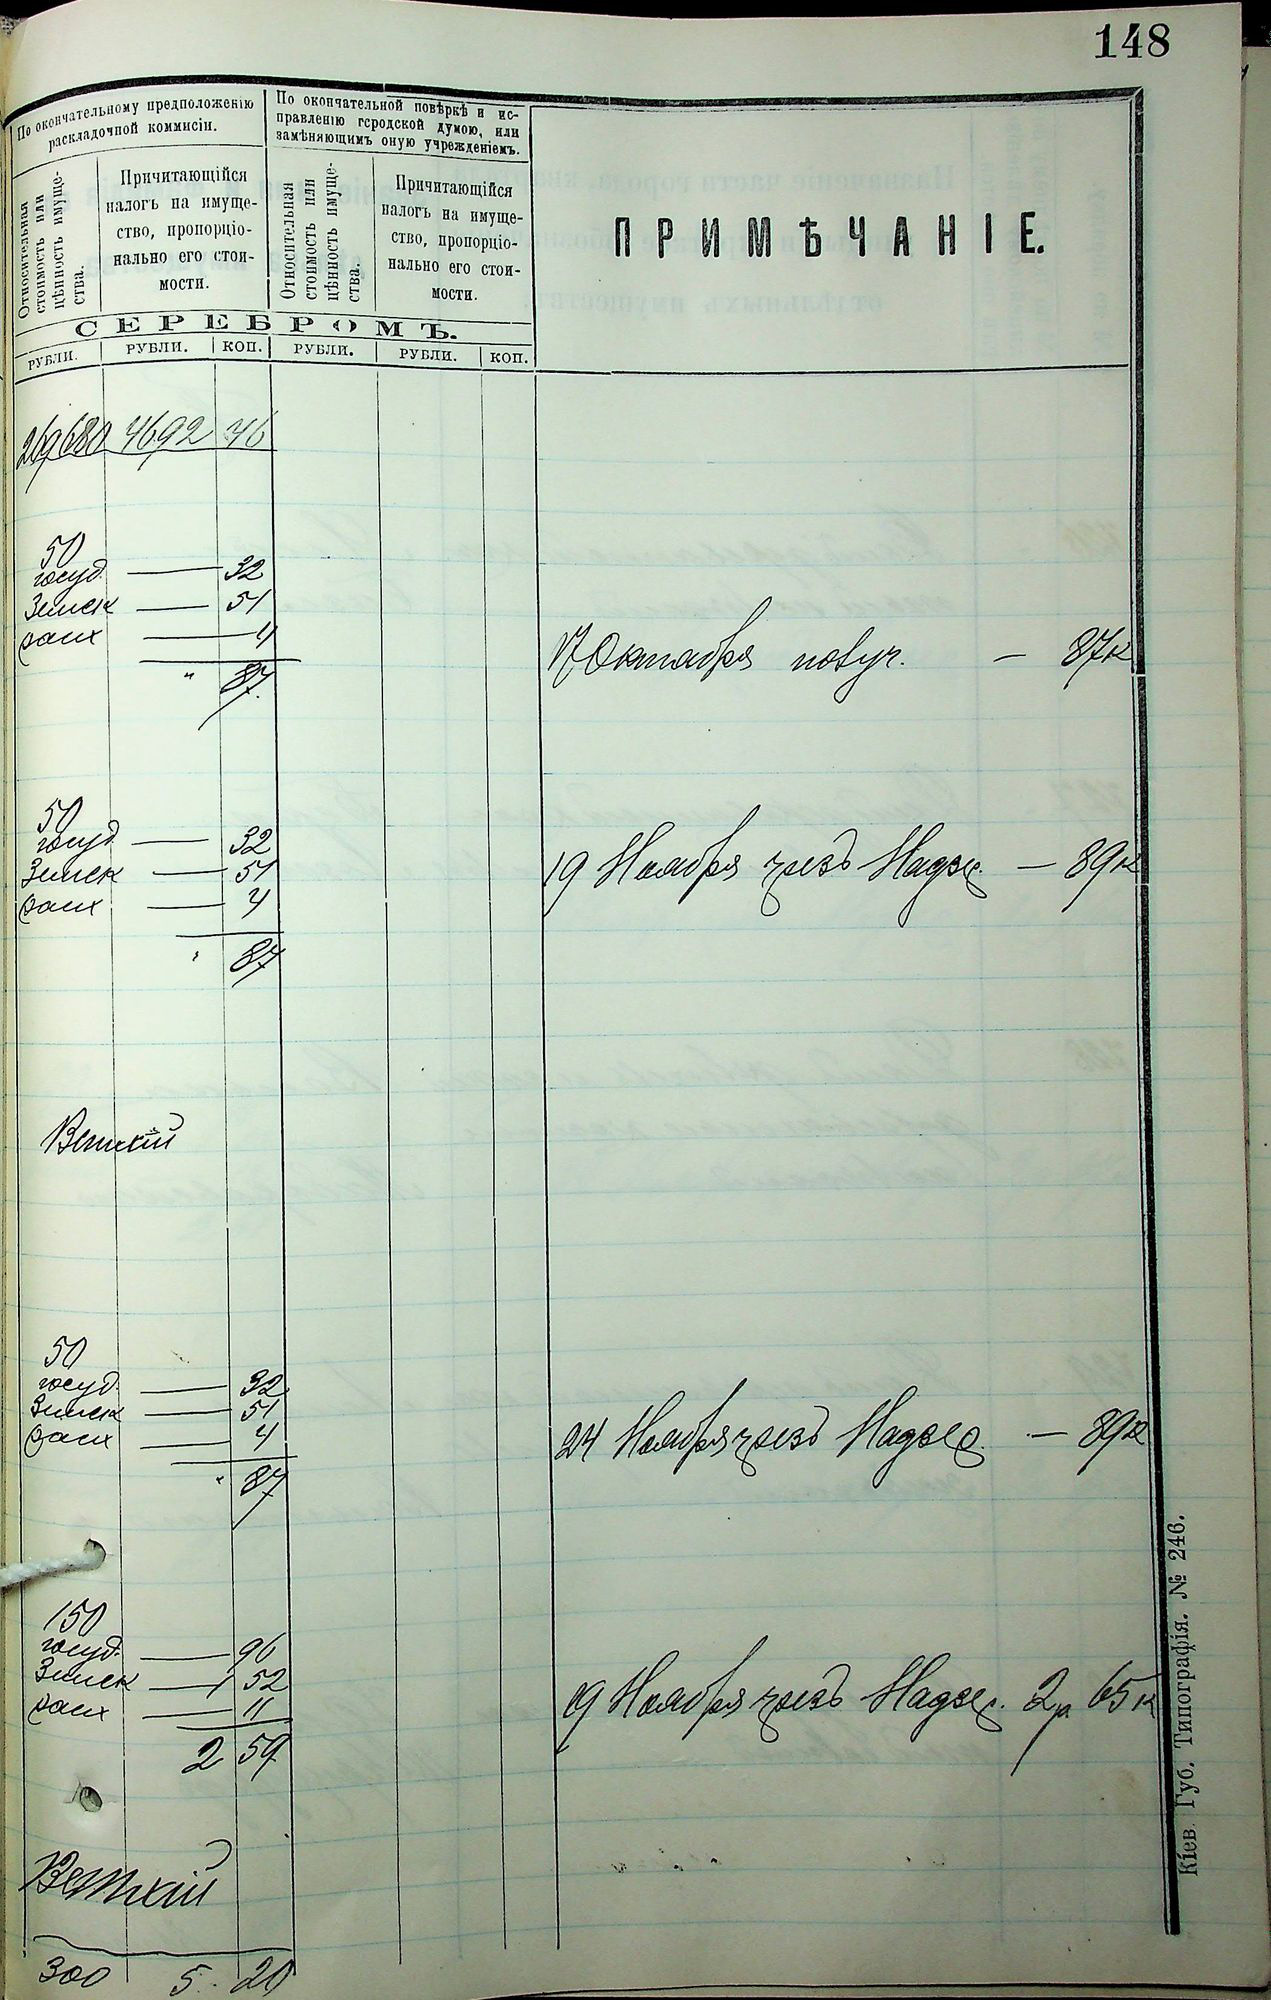 148
По окончательному предположенію
раскладочной коммисіи.
По окончательной повѣркѣ и ис-
правленію городской думою, или
замѣняющимъ оную учрежденіемъ.
Относительная
стоимость или
цѣнность имуще-
ства.
Причитающійся
налогъ на имуще-
ство, пропорціо-
нально его стои-
мости.
Относительная
стоимость или
цѣнность имуще-
ства.
Причитающійся
налогъ на имуще-
ство, пропорціо-
нально его стои-
мости.
ПРИМѢЧАНІЕ.
СЕРЕБРОМЪ.
РУБЛИ. РУБЛИ. КОП. РУБЛИ. РУБЛИ. КОП.
269680 4692 46
50
госуд. — 32
Земск — 51
4
" 87
17 Октября получ. — 87к
50
госуд. — 32
Земск — 51
4
" 87
19 Ноября чрезъ Надзс. — 89к
Ветхій
50
госуд. — 32
Земск — 51
4
" 87
24 Ноября чрезъ Надзс. — 89к
150
госуд. — 96
Земск — 1 52
11
2 59
19 Ноября чрезъ Надзс. 2р 65к
Ветхій
300 5. 20
Кіев. Губ. Типографія. № 246.